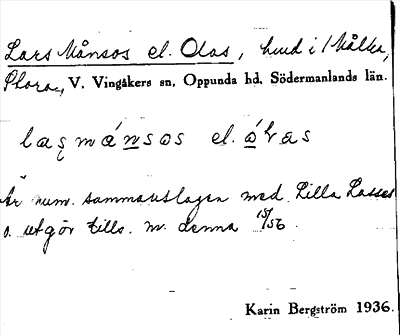 Lars Månsos el. Olas, hmd i Målke,
Stora, V. Vingåkers sn, Oppunda hd, Södermanlands län.
el.
Är num. sammanslagen med Lilla Lasses
o. utgör tills. m. denna 15/56.
Karin Bergström 1936.